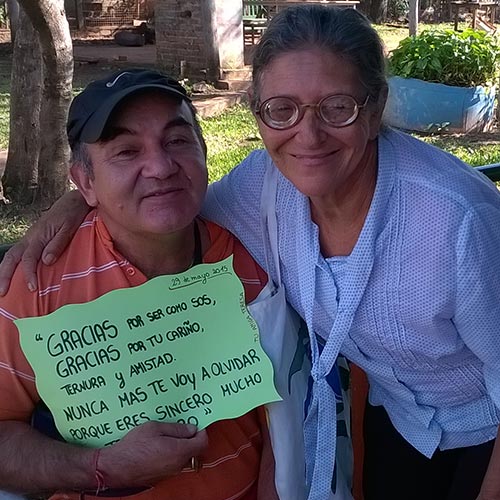 29 de mayo 2015
"GRACIAS POR SER COMO SOS,
GRACIAS POR TU CARIÑO,
TERNURA Y AMISTAD.
NUNCA MAS TE VOY A OLVIDAR
PORQUE ERES SINCERO MUCHO